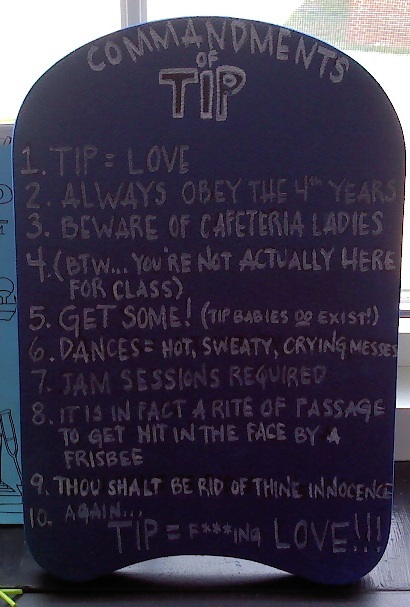 COMMANDMENTS
OF
TIP
1. TIP = LOVE
2. ALWAYS OBEY THE 4th YEARS
3. BEWARE OF CAFETERIA LADIES
4. (BTW... YOU'RE NOT ACTUALLY HERE
FOR CLASS)
5. GET SOME! (TIP BABIES DO EXIST!)
6. DANCES = HOT, SWEATY, CRYING MESSES
7. JAM SESSIONS REQUIRED
8. IT IS IN FACT A RITE OF PASSAGE
TO GET HIT IN THE FACE BY A
FRISBEE
9. THOU SHALT BE RID OF THINE INNOCENCE
10. AGAIN...
TIP = F***ING LOVE!!!